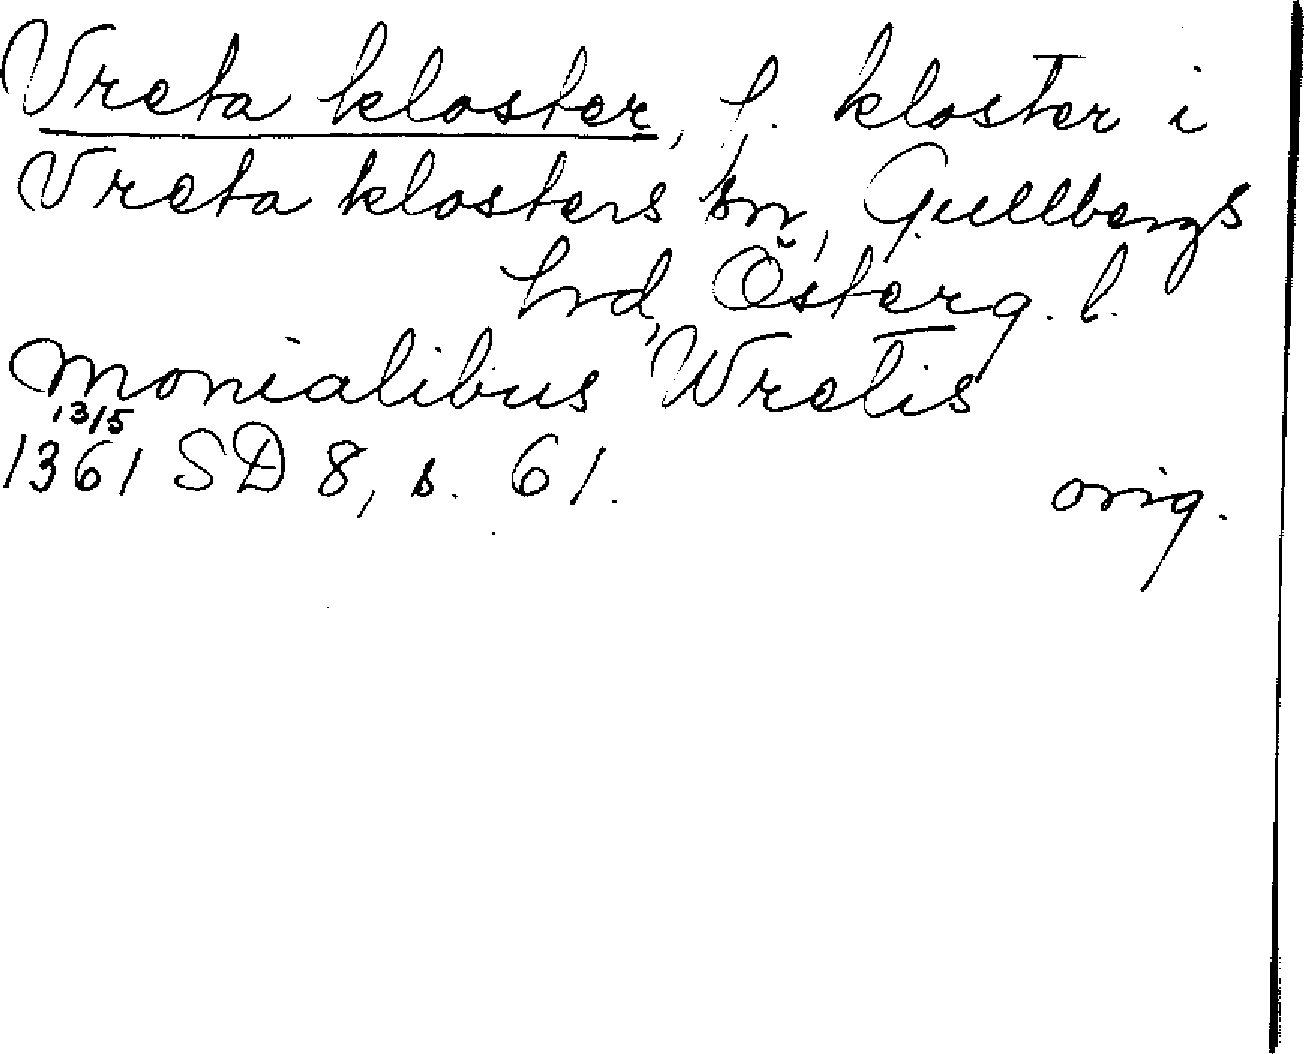 Vreta kloster, f. kloster i
Vreta klosters sn, Gullbergs
hrd, Österg. l.
monialibus Wretis
13/5
1361 SD 8, s. 61.
orig.